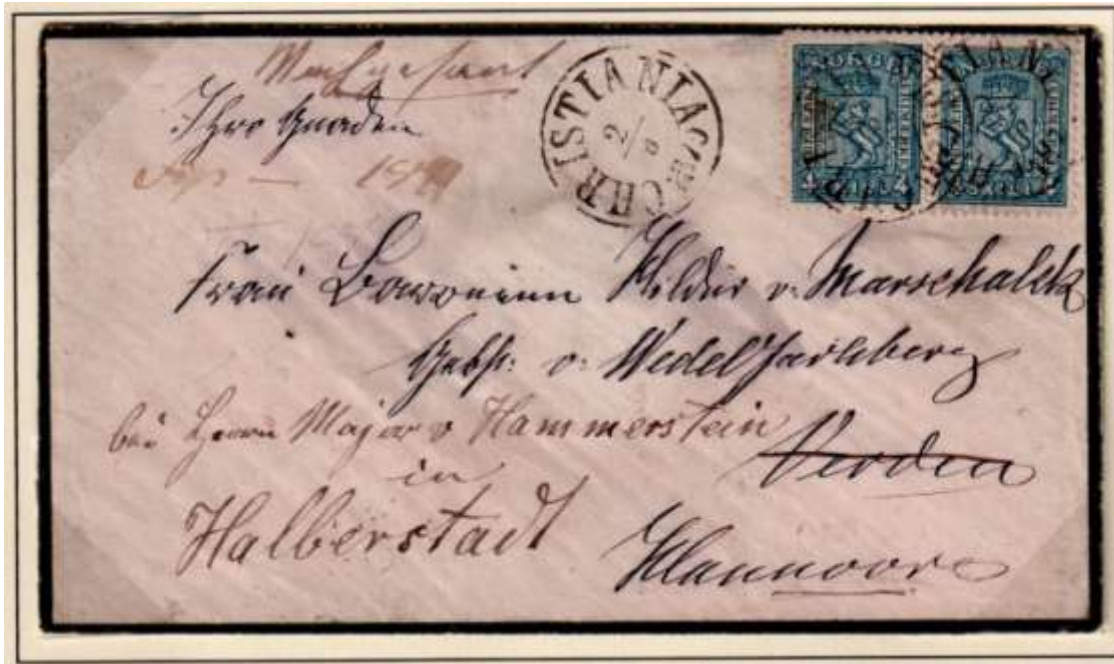 Ihro Gnaden
CHRISTIANIA
2
8
NORGE
4 4
Frau Baronin Hilda v. Marschalck
Gebh: v: Wedel Jarlsberg
bei Herrn Major v Hammerstein
Verden
in
Halberstadt
Hannover